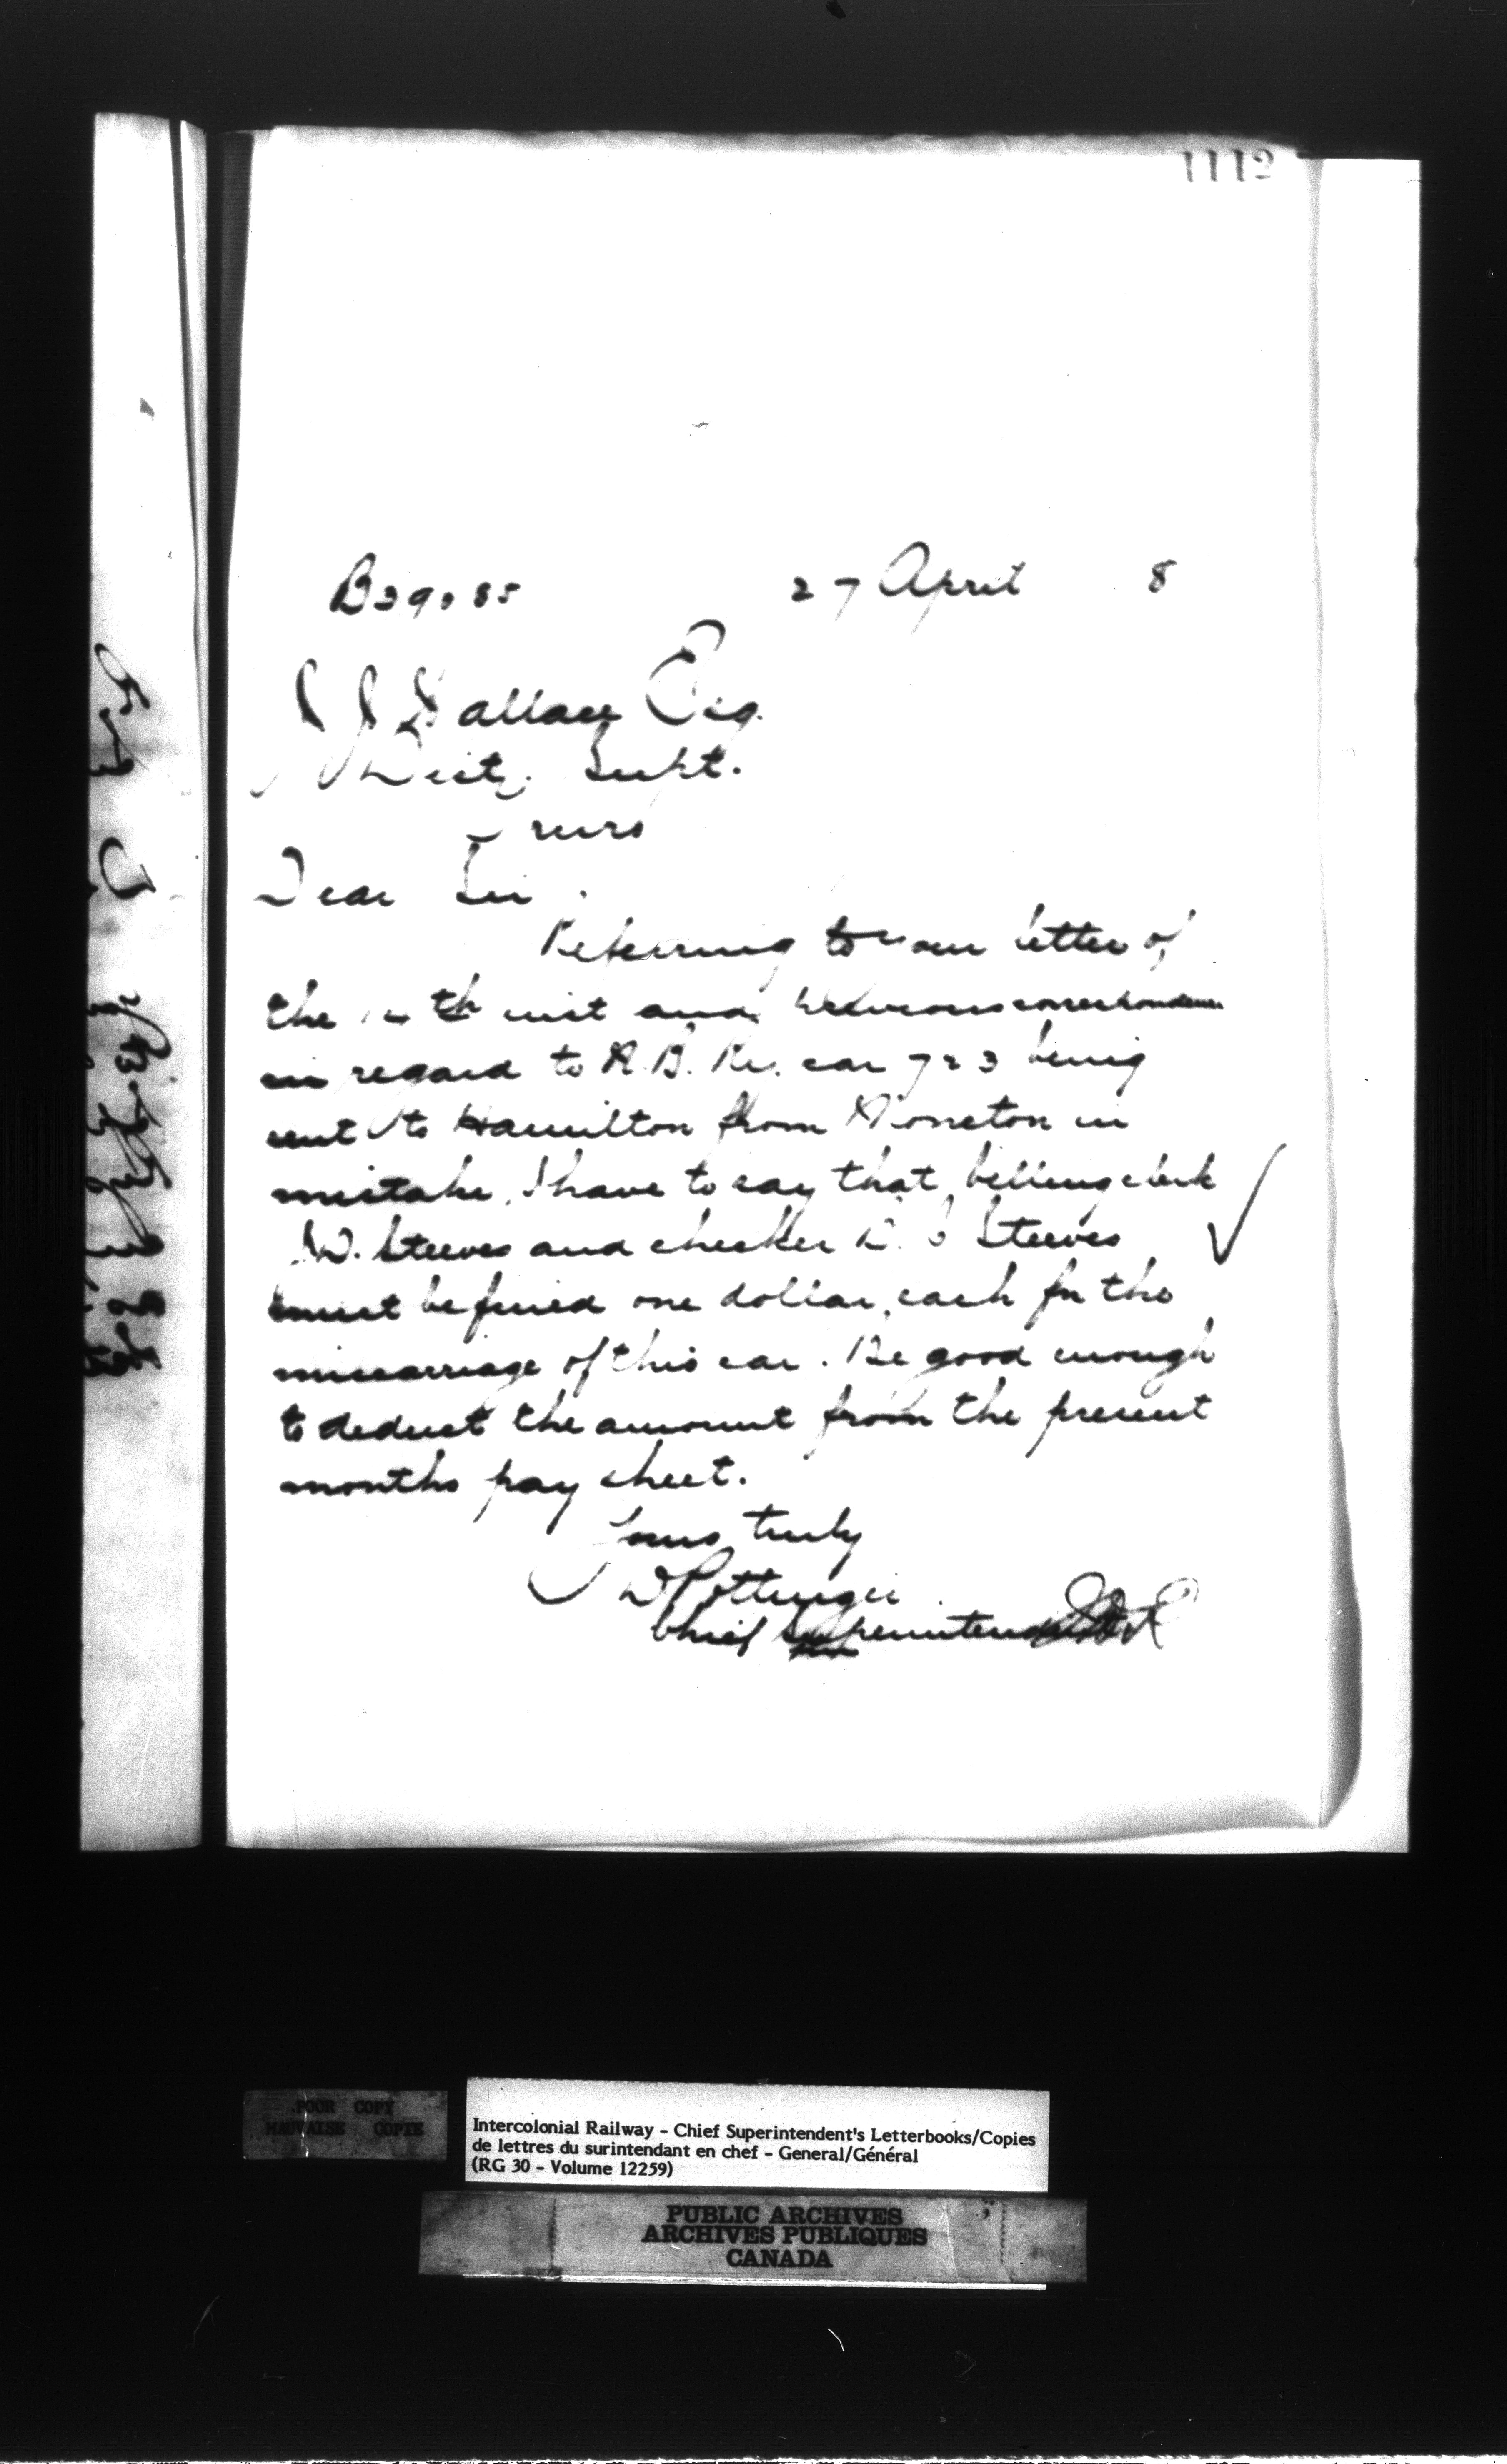 1112
B29085 27 April 8
J J Wallace Esq.
Dist. Supt.
Truro
Dear Sir.
Referring to your letter of
the th inst and previous correspondence
in regard to N.B. Ry. car 723 being
sent to Hamilton from Moncton in
mistake, I have to say that billing clerk
W. Steeves and checker Steeves
must be fined one dollar each for the
miscarriage of this car. Be good enough
to deduct the amount from the present
months pay sheet.
Yours truly
D Pottinger
Chief Superintendent
POOR COPY
MAUVAISE COPIE
Intercolonial Railway - Chief Superintendent's Letterbooks/Copies
de lettres du surintendant en chef - General/Général
(RG 30 - Volume 12259)
PUBLIC ARCHIVES
ARCHIVES PUBLIQUES
CANADA